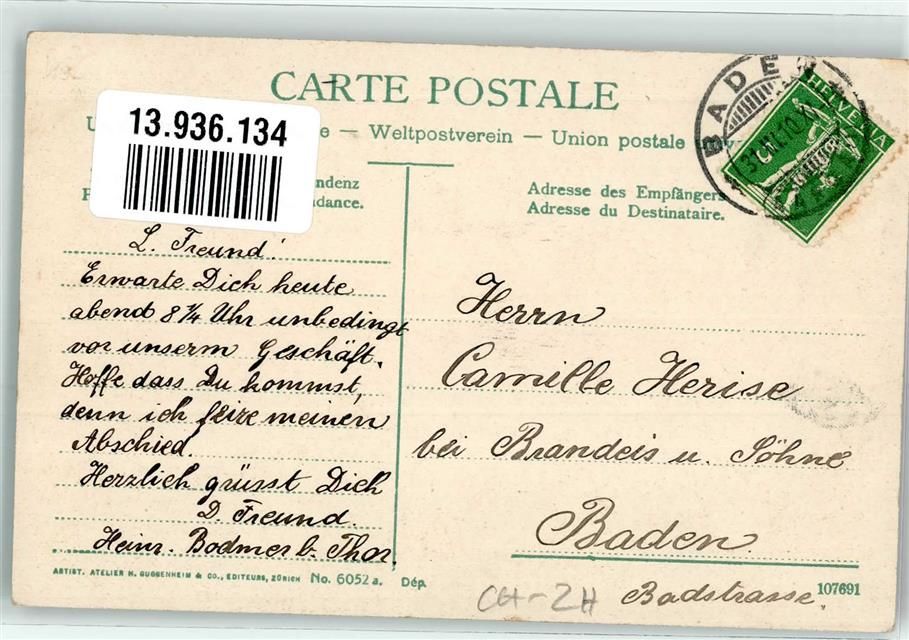 CARTE POSTALE
13.936.134
U e — Weltpostverein — Union postale
ndenz
dance.
Adresse des Empfängers
Adresse du Destinataire.
BADEN
HELVETIA
L. Freund!
Erwarte Dich heute
abend 8 1/4 Uhr unbedingt
vor unserm Geschäft.
Hoffe dass Du kommst,
denn ich feire meinen
Abschied.
Herzlich grüsst Dich
D. Freund.
Heinr. Bodmer b. Thor
Herrn
Camille Herise
bei Brandeis u. Söhne
Baden.
Badstrasse.
ARTIST. ATELIER H. GUGGENHEIM & CO., EDITEURS, ZÜRICH No. 6052 a. Dép.
107691
CH-ZH